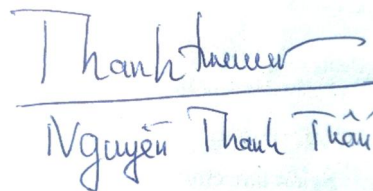 Thanh
Nguyễn Thanh Tuấn